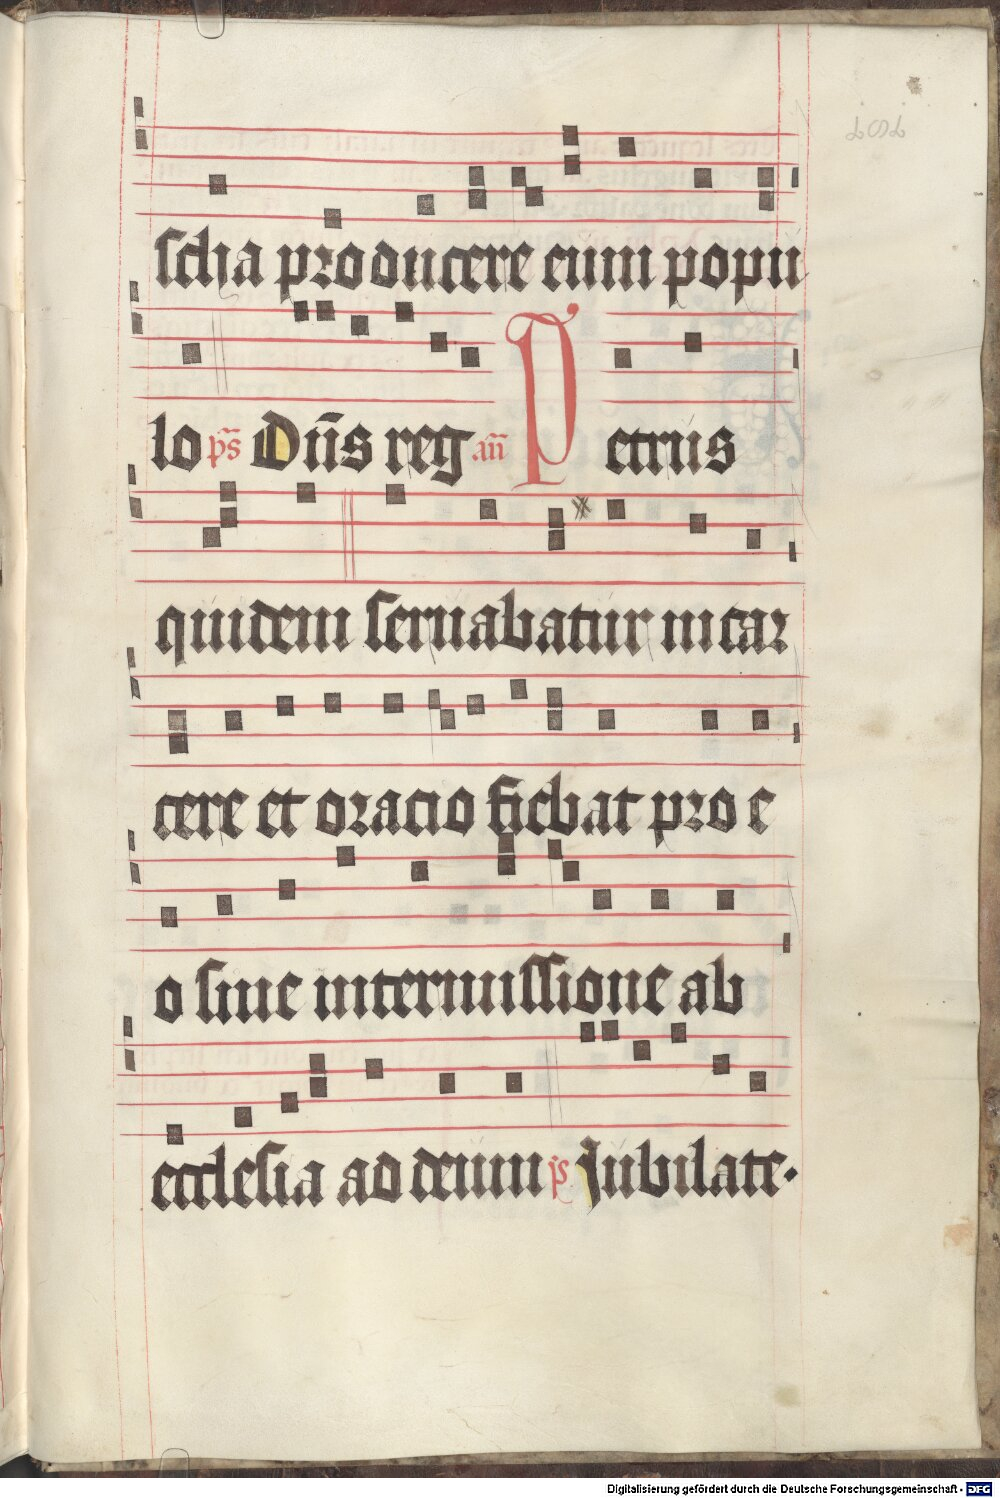 scha producere eum popu
lo ps̄ Dn̄s reg an̄ Petrus
quidem seruabatur in car
cere et oracio fiebat pro e
o sine intermissione ab
ecclesia ad deum ps Jubilate.
Digitalisierung gefördert durch die Deutsche Forschungsgemeinschaft - DFG